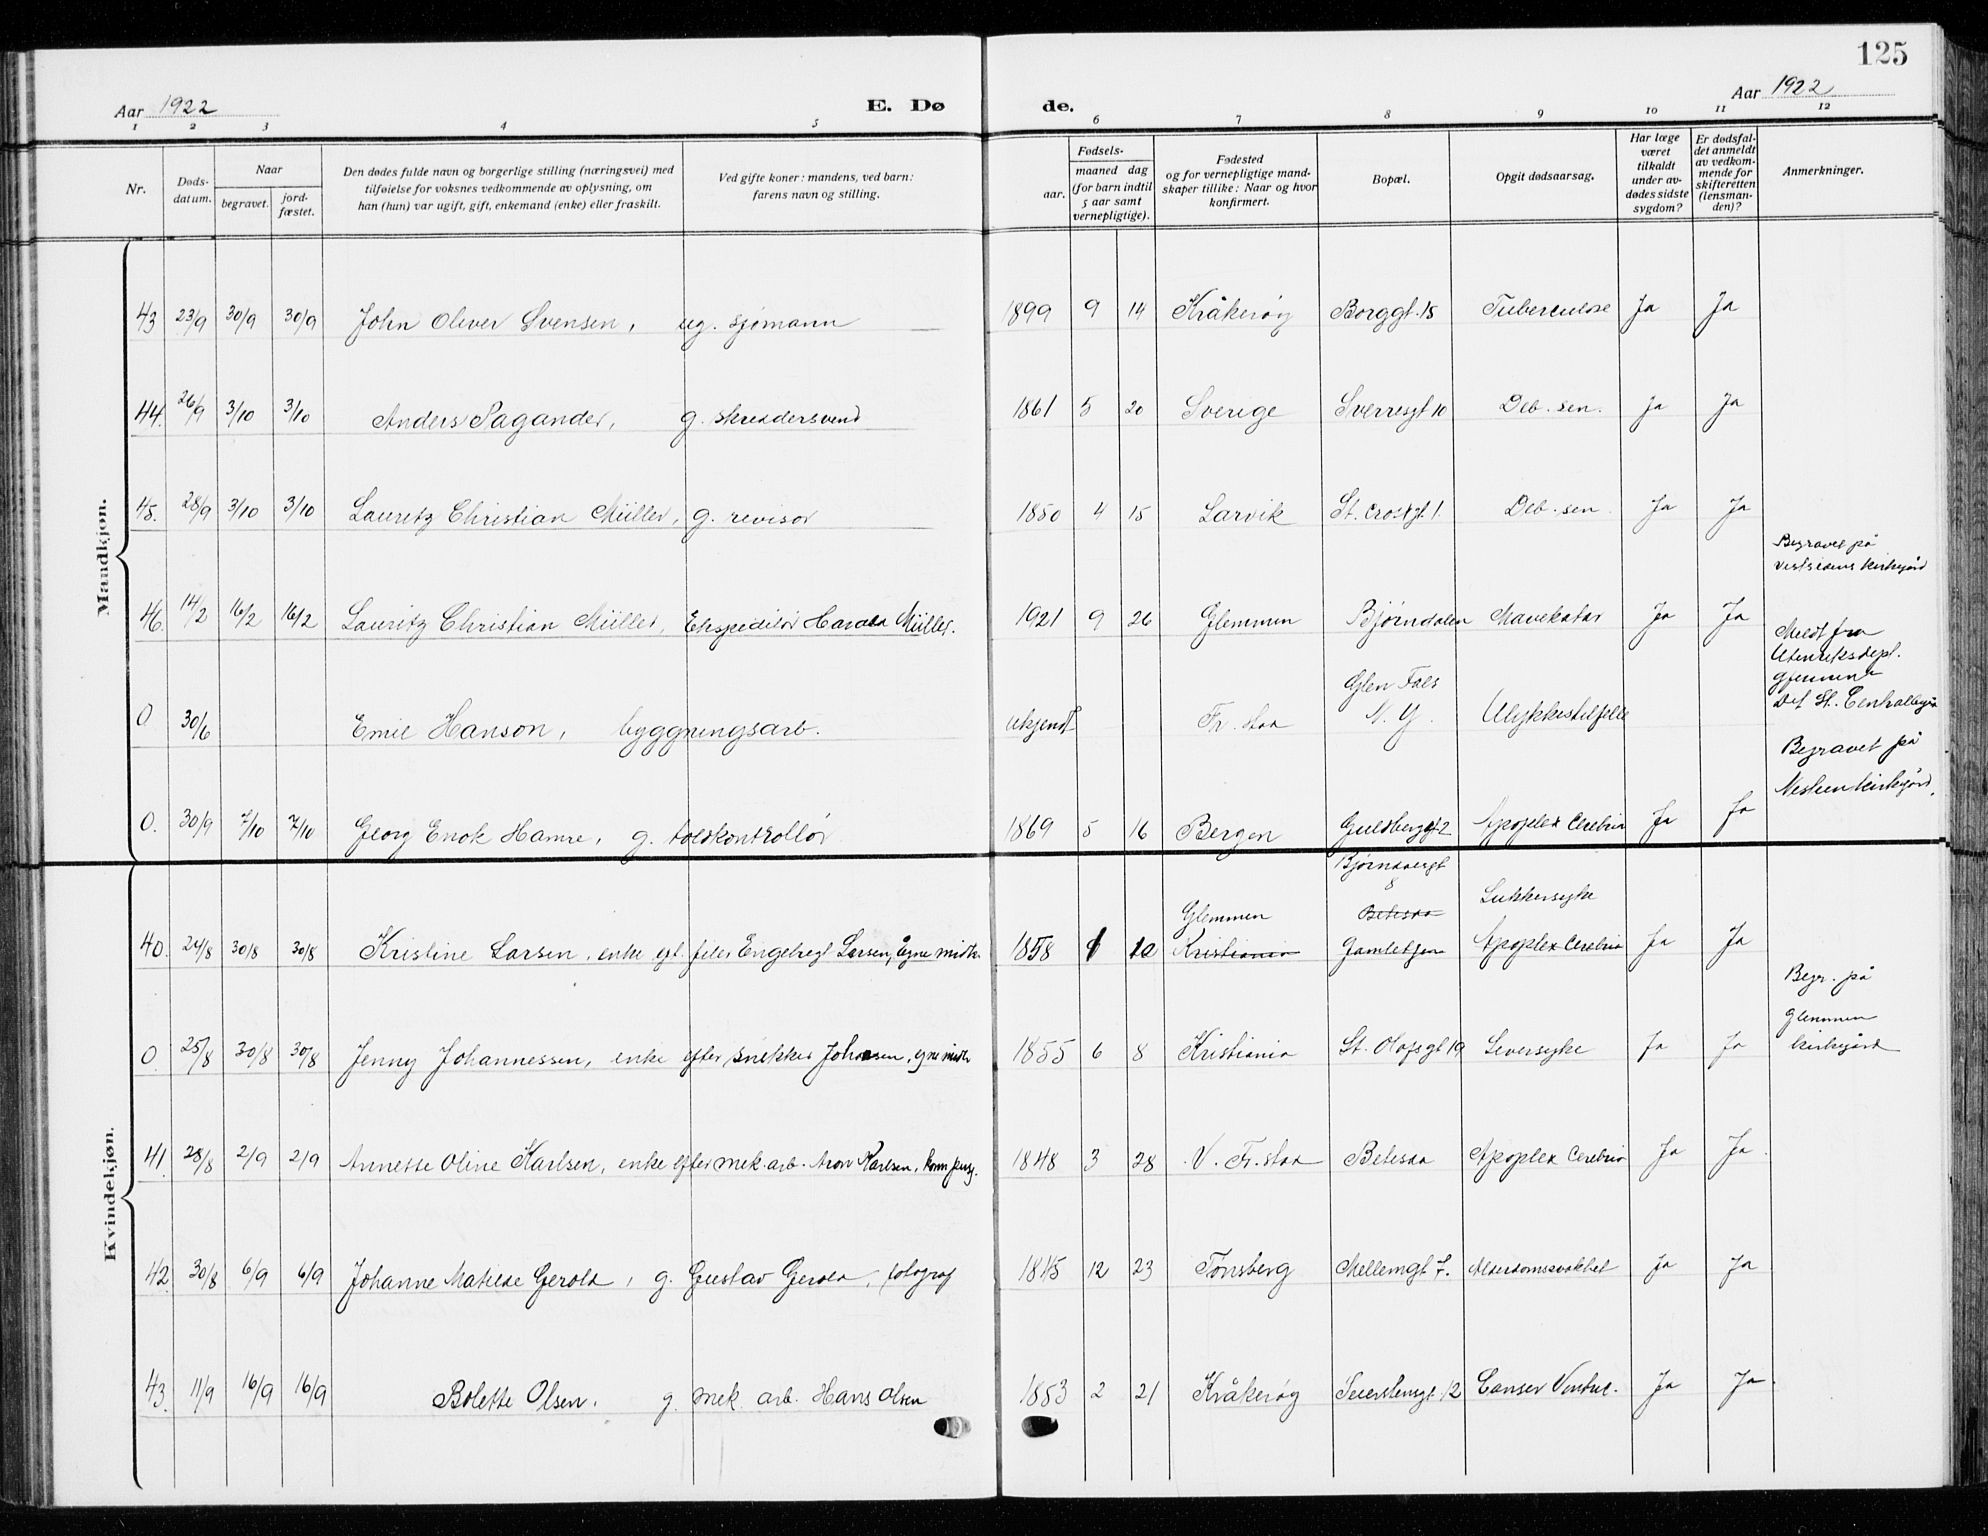 125
Aar 1922 E. Dø de. Aar 1922
1 2 3 4 5 6 7 8 9 10 11 12
Nr.
Døds-
datum.
Naar
begravet.
jord-
fæstet.
Den dødes fulde navn og borgerlige stilling (næringsvei) med
tilføielse for voksnes vedkommende av oplysning, om
han (hun) var ugift, gift, enkemand (enke) eller fraskilt.
Ved gifte koner: mandens, ved barn:
farens navn og stilling.
Fødsels-
aar.
maaned dag
(for barn indtil
5 aar samt
vernepligtige).
Fødested
og for vernepligtige mand-
skaper tillike: Naar og hvor
konfirmert.
Bopæl.
Opgit dødsaarsag.
Har læge
været
tilkaldt
under av-
dødes sidste
sygdom?
Er dødsfal-
det anmeldt
av vedkom-
mende for
skifteretten
(lensman-
den)?
Anmerkninger.
Mandkjøn.
43 23/9 30/9 30/9 John Oliver Svensen, ug. sjømann 1899 9 14 Kråkerøy Borggt. 18 Tuberculose Ja Ja
44. 26/9 3/10 3/10 Anders Pagander, g. skreddersvend 1861 5 20 Sverige Sverresgt 10 Deb. sen. Ja Ja
45. 28/9 3/10 3/10 Lauritz Christian Müller, g. revisor 1850 4 15 Larvik St. Croixgt 1. Deb. sen. Ja Ja
Begravet på
vestsidens kirkegård
46. 14/2 16/2 16/2 Lauritz Christian Müller, Ekspeditør Harald Müller. 1921 9 26 Glemmen Bjørndalen Mavekatar Ja Ja
Meldt fra
Utenriksdept.
gjennem
Det St. Centralbyrå
0 30/6 Emil Hanson, byggningsarb. ukjendt Fr. stad
Glen Fals
N. Y.
Ulykkestilfelle
Begravet på
kirkegård.
0. 30/9 7/10 7/10 Georg Enok Hamre, g. toldkontrollør 1869 5 16 Bergen Guldberggt 2 Apoplex Cerebria Ja Ja
Kvindekjøn.
Bjørndalsgt
8
Glemmen Betesda Sukkersyke
40. 24/8 30/8 30/8 Kristine Larsen, enke eft. filer Engebregt Larsen, Egne midl. 1858 1 10 Kristiania Gamlehjem Apoplex Cerebria Ja Ja
Begr. på
Glemmen
kirkegård
0 25/8 30/8 30/8 Jenny Johannessen, enke efter snekker Johansen, egne midl. 1855 6 8 Kristiania St. Olafsgt 19 Leversyke Ja Ja
41. 28/8 2/9 2/9 Annette Oline Karlsen, enke efter mek. arb. Aron Karlsen, kom. 1848 3 28 V. Fr. stad Betesda Apoplex Cerebria Ja Ja
42 30/8 6/9 6/9 Johanne Matilde Gerold, g. Gustav Gerold, fotograf 1845 12 23 Tønsberg Mellemgt 7. Alderdomssvakhet Ja Ja
43. 11/9 16/9 16/9 Bolette Olsen. g. mek. arb. Hans Olsen 1853 2 21 Kråkerøy Seierstensgt 12 Canser Ventric. Ja Ja